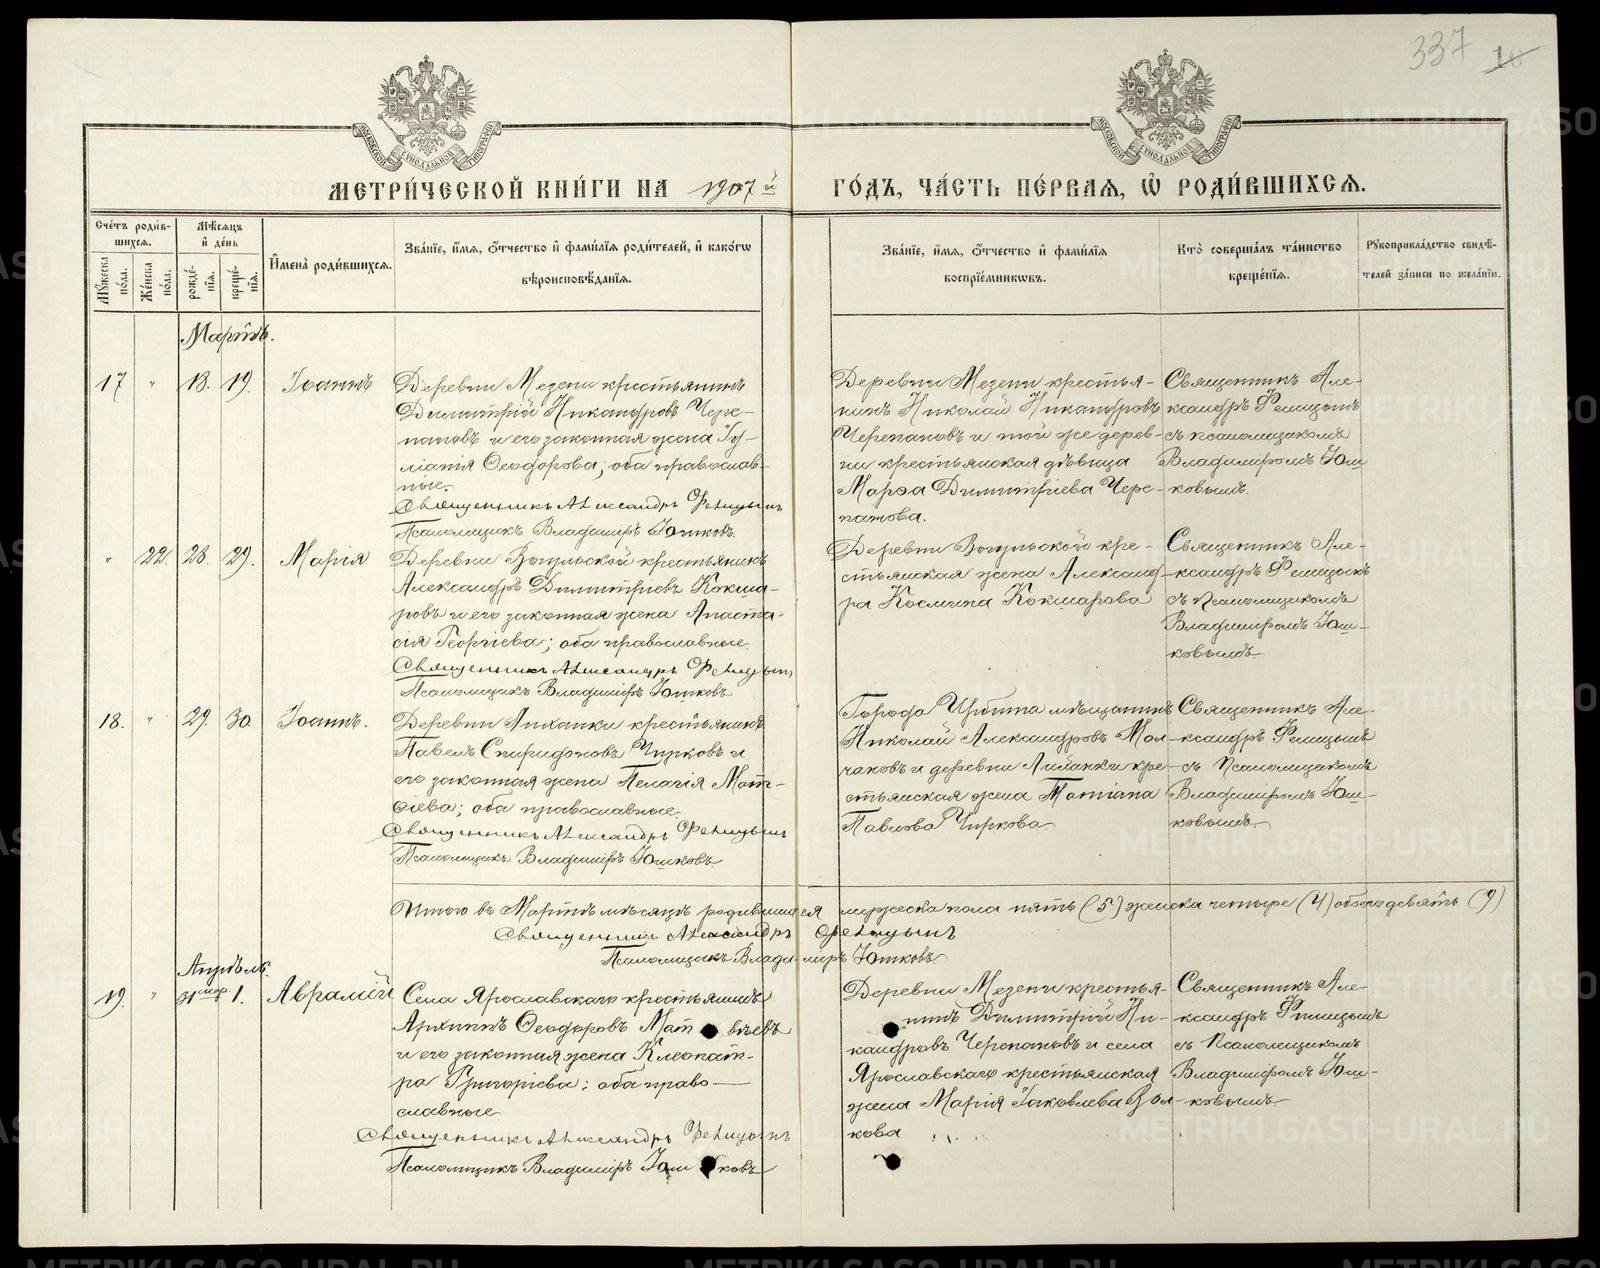 337 10
МОСКОВСКОЙ СѴНОДАЛЬНОЙ ТИПОГРАФІИ
МОСКОВСКОЙ СѴНОДАЛЬНОЙ ТИПОГРАФІИ
МЕТРИ́ЧЕСКОЙ КНИ́ГИ НА 1907й ГО́ДЪ, ЧА́СТЬ ПЕ́РВАЯ, Ѡ РОДИ́ВШИХСЯ.
Сче́тъ роди́вшихся.
Му́жеска по́ла.
Же́нска по́ла.
Мѣ́сяцъ и де́нь
рожде́нїя.
креще́нїя.
Имена̀ роди́вшихся.
Зва́нїе, и́мя, о́тчество и фами́лїя роди́телей, и како́гѡ
вѣроисповѣ́данїя.
Зва́нїе, и́мя, о́тчество и фами́лїя
воспрїе́мниковъ.
Кто̀ соверша́лъ та́инство
креще́нїя.
Рукоприкла́дство свидѣ́телей за́писи по жела́нїю.
Мартъ.
17 " 18. 19. Іоаннъ
Деревни Мезени крестьянинъ
Димитрій Никандровъ Чере-
пановъ и его законная жена Іу-
ліанія Ѳеодорова; оба православ-
ные.
Священникъ Александръ Феницынъ
Псаломщикъ Владиміръ Юшковъ.
Деревни Мезени крестья-
нинъ Николай Никандровъ
Черепановъ и той же дерев-
ни крестьянская дѣвица
Марѳа Димитріева Чере-
панова.
Священникъ Але-
ксандръ Феницынъ
съ псаломщикомъ
Владиміромъ Юш-
ковымъ.
" 22. 28. 29. Марія
Деревни Вогульской крестьянинъ
Александръ Димитріевъ Кокша-
ровъ и его законная жена Анаста-
сія Георгіева; оба православные.
Священникъ Александръ Феницынъ
Псаломщикъ Владиміръ Юшковъ
Деревни Вогульской кре-
стьянская жена Александ-
ра Космина Кокшарова
Священникъ Але-
ксандръ Феницынъ
съ Псаломщикомъ
Владиміромъ Юш-
ковымъ.
18. " 29. 30 Іоаннъ.
Деревни Лиханки крестьянинъ
Павелъ Спиридоновъ Чирковъ и
его законная жена Пелагія Мат-
ѳіева; оба православные.
Священникъ Александръ Феницынъ
Псаломщикъ Владиміръ Юшковъ
Города Ирбита мѣщанинъ
Николай Александровъ Мол-
чановъ и деревни Лиханки кре-
стьянская жена Татіана
Павлова Чиркова
Священникъ Але-
ксандръ Феницынъ
съ Псаломщикомъ
Владиміромъ Юш-
ковымъ.
Итого въ Мартѣ мѣсяцѣ родившихся мужеска пола пять (5) женска четыре (4) обоего девять (9)
Священникъ Александръ Феницынъ
Псаломщикъ Владиміръ Юшковъ.
Апрѣль.
19. " 31 мар. 1. Аврамій
Села Ярославскаго крестьянинъ
Архиппъ Ѳеодоровъ Матвѣевъ
и его законная жена Клеопат-
ра Григоріева; оба право-
славные
Священникъ Александръ Феницынъ
Псаломщикъ Владиміръ Юшковъ
Деревни Мезени крестья-
нинъ Димитрій Ни-
кандровъ Черепановъ и села
Ярославскаго крестьянская
жена Марія Іаковлева Вол-
кова
Священникъ Але-
ксандръ Феницынъ
съ Псаломщикомъ
Владиміромъ Юш-
ковымъ
METRIKI.GASO-URAL.RU